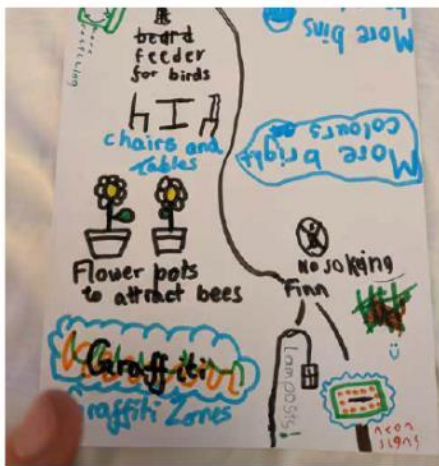 beard
feeder
for birds
chairs and
Tables
Flower pots
to attract bees
Graffiti
Graffiti Zones
More bins
More bright
colours
No soking
Finn
Lamposts!
neon
signs